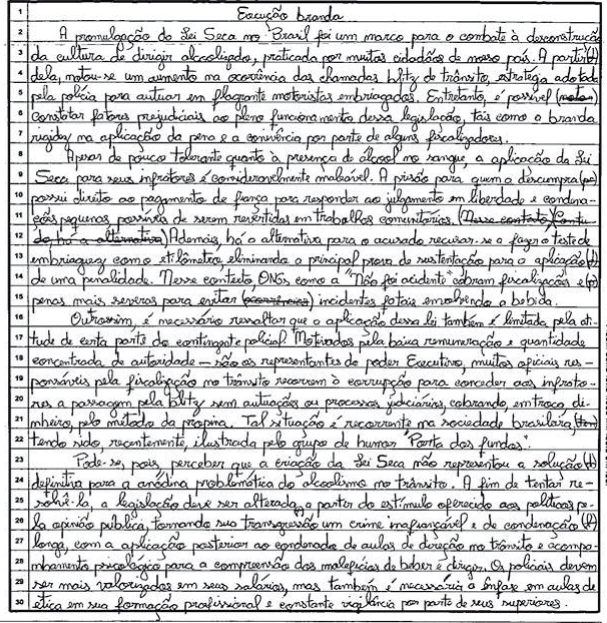 1 Execução branda
2 A promulgação da Lei Seca no Brasil foi um marco para o combate à desconstrução
3 da cultura de dirigir alcoolizado, praticada por muitos cidadãos de nosso país. A partir (d)
4 dela, notou-se um aumento na ocorrência das chamadas blitz de trânsito, estratégia adotada
5 pela polícia para autuar em flagrante motoristas embriagados. Entretanto, é possível (notar)
6 constatar fatores prejudiciais ao pleno funcionamento dessa legislação, tais como a branda
7 rigidez na aplicação da pena e a conivência por parte de alguns fiscalizadores.
8 Apesar de pouco tolerante quanto à presença de álcool no sangue, a aplicação da Lei
9 Seca para seus infratores é consideravelmente maleável. A prisão para quem a descumpra (po)
10 possui direito ao pagamento de fiança para responder ao julgamento em liberdade e condena-
11 ções pequenas possíveis de serem revertidas em trabalhos comunitários. (Nesse contexto) (Contu-
12 do há a alternativa) Ademais, há a alternativa para o acusado recusar-se a fazer o teste de
13 embriaguez como etilômetro, eliminando a principal prova de sustentação para a aplicação (d)
14 de uma penalidade. Nesse contexto, ONGs, como a "Não foi acidente" cobram fiscalizações e (p)
15 penas mais severas para evitar incidentes fatais envolvendo a bebida.
16 Outrossim, é necessário ressaltar que a aplicação dessa lei também é limitada pela ati-
17 tude de certa parte do contingente policial. Motivados pela baixa remuneração e quantidade
18 concentrada de autoridade – são os representantes do poder Executivo, muitos oficiais res-
19 ponsáveis pela fiscalização no trânsito recorrem à corrupção para conceder aos infrato-
20 res a passagem pela blitz sem autuações ou processos judiciários, cobrando, em troca, di-
21 nheiro, pelo método da propina. Tal situação é recorrente na sociedade brasileira, (ten)
22 tendo sido, recentemente, ilustrada pelo grupo de humor "Porta dos fundos".
23 Pode-se, pois, perceber que a criação da Lei Seca não representou a solução (d)
24 definitiva para a anódina problemática do alcoolismo no trânsito. A fim de tentar re-
25 solvê-la, a legislação deve ser alterada, a partir do estímulo oferecido aos políticos pe-
26 la opinião pública, tornando sua transgressão um crime inafiançável e de condenação (l)
27 longa, com a aplicação posterior ao condenado de aulas de direção no trânsito e acompa-
28 nhamento psicológico para a compreensão dos malefícios de beber e dirigir. Os policiais devem
29 ser mais valorizados em seus salários, mas também é necessária a ênfase em aulas de
30 ética em sua formação profissional e constante vigilância por parte de seus superiores.